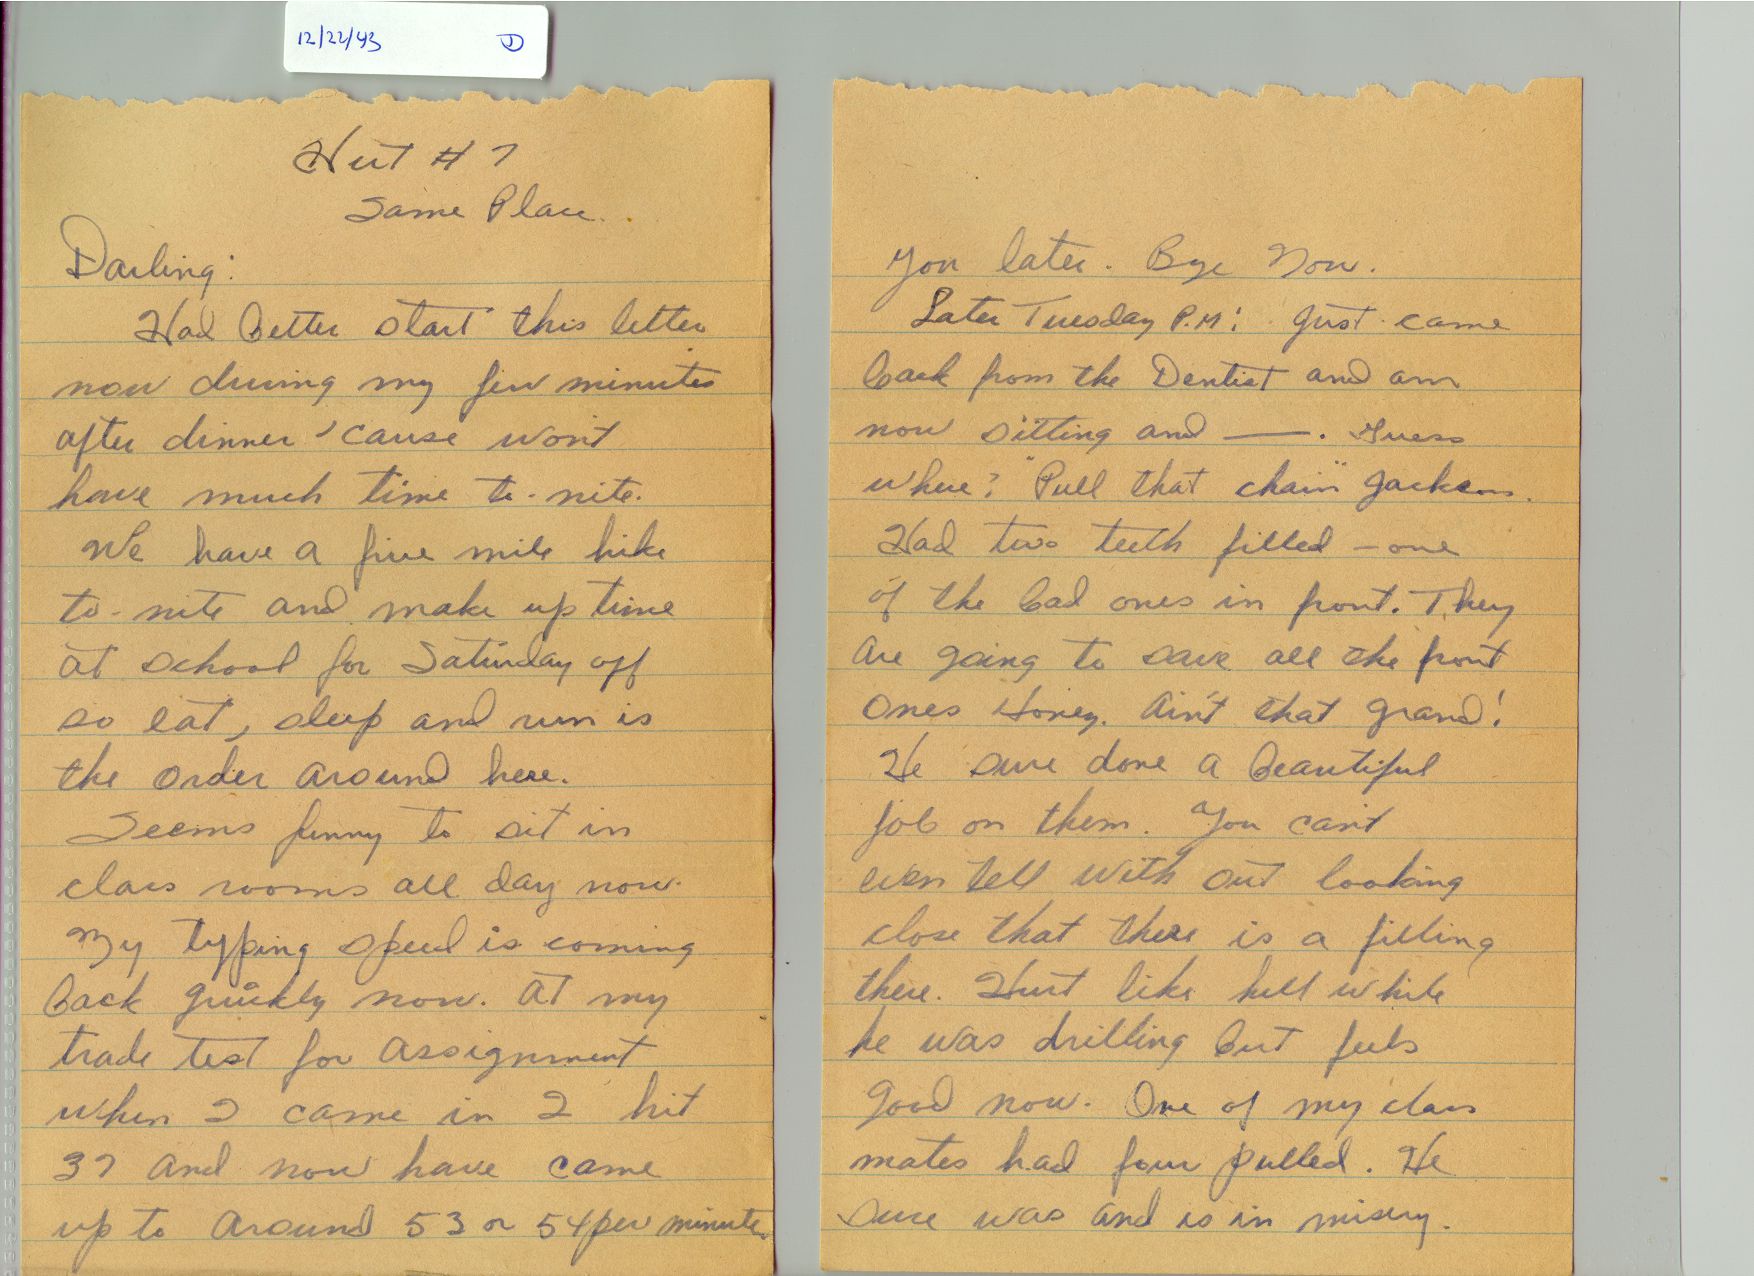 12/22/43 D
Hut # 7
Same Place.
Darling:
Had better start this letter
now during my few minutes
after dinner 'cause wont
have much time to-nite.
We have a five mile hike
to-nite and make up time
at school for Saturday off
so eat, sleep and run is
the order around here.
Seems funny to sit in
class rooms all day now.
My typing speed is coming
back quickly now. At my
trade test for assignment
when I came in I hit
37 and now have came
up to around 53 or 54 per minute
you later. Bye Now.
Later Tuesday P.M: Just came
back from the Dentist and am
now sitting and —. Guess
where? "Pull that chain" Jackson.
Had two teeth filled – one
of the bad ones in front. They
are going to save all the front
ones Honey. Ain't that grand!
He sure done a beautiful
job on them. You can't
even tell with out looking
close that there is a filling
there. Hurt like hell while
he was drilling but feels
good now. One of my class
mates had four pulled. He
sure was and is in misery.